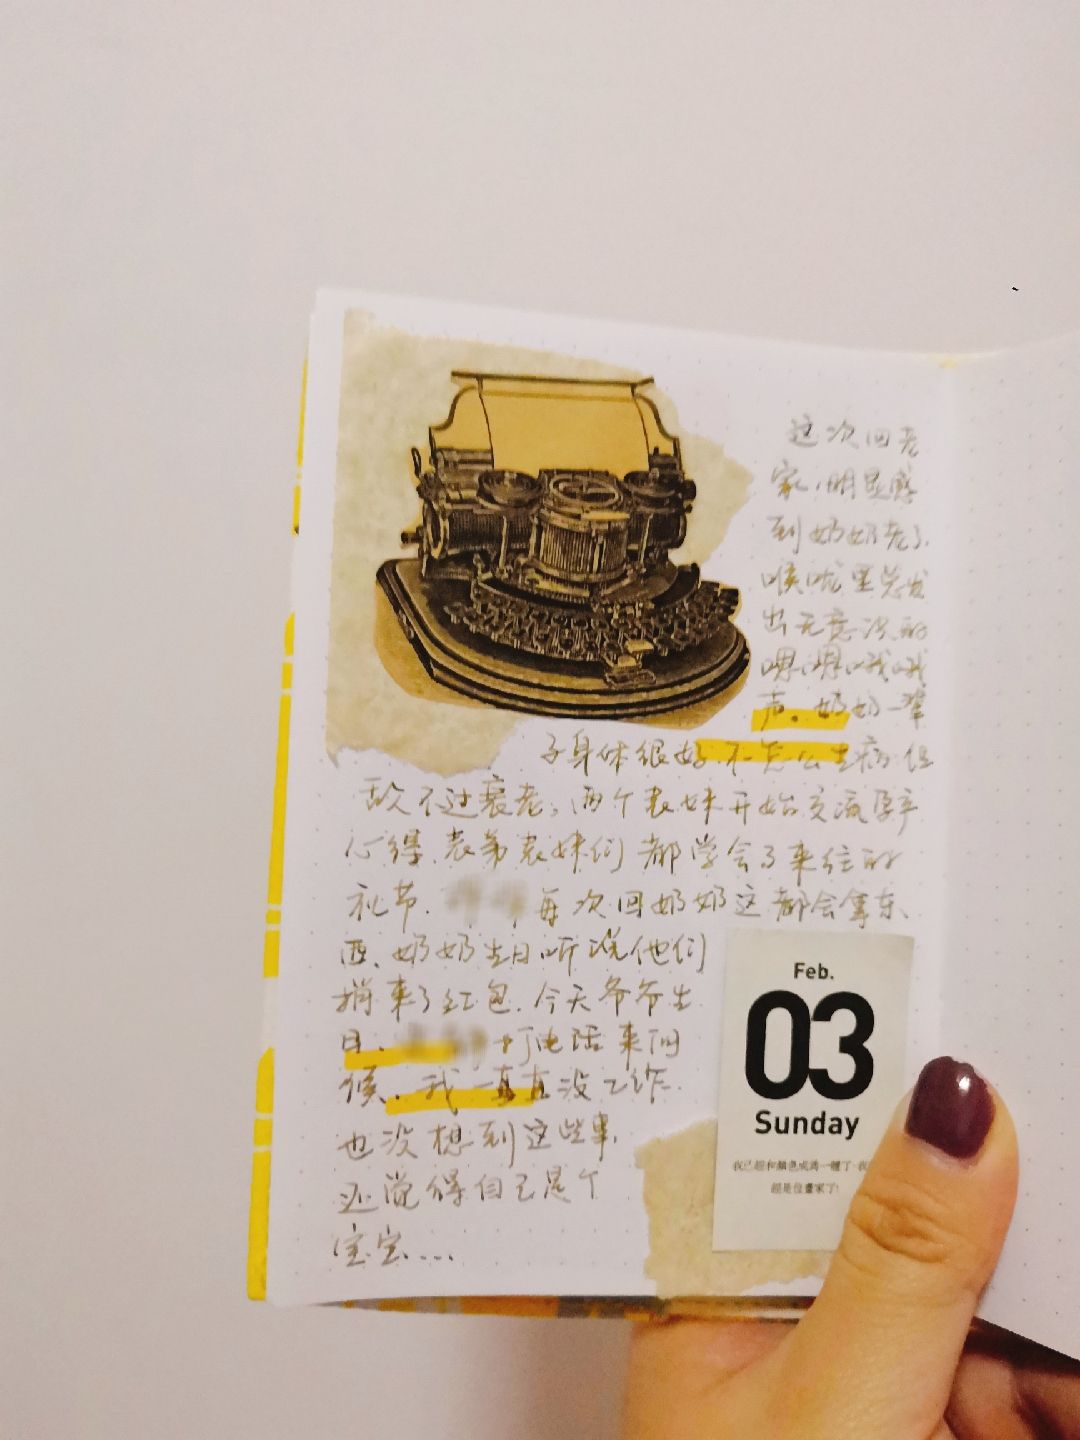 这次回老
家,明显感
到奶奶老了.
喉咙里总发
出无意识的
嗯嗯哦哦
声。奶奶一辈
子身体很好不怎么生病但
敌不过衰老,两个表妹开始交流孕产
心得,表弟表妹们都学会了来往的
礼节. 每次回奶奶这都会拿东
西、奶奶生日听说他们
捎来了红包.今天爷爷生
日. 打电话来问
候.我一直没工作
也没想到这些事,
还觉得自己是个
宝宝....
Feb.
03
Sunday
我已經和顏色成為一體了,我
經是位畫家了!